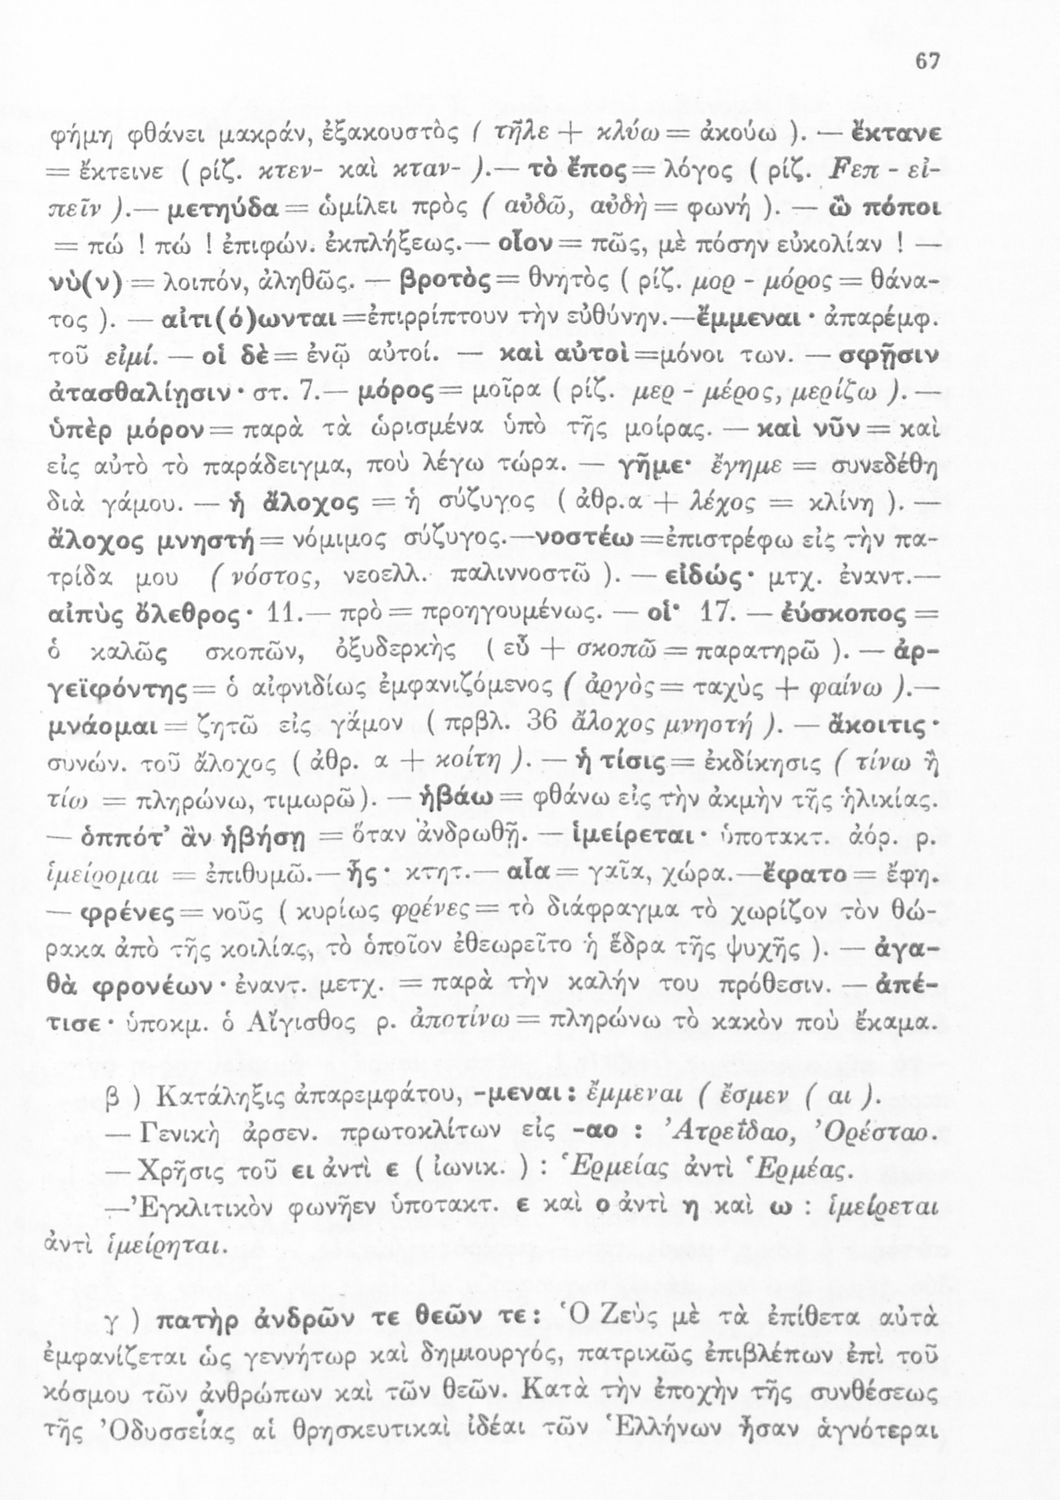 67
φήμη φθάνει μακράν, ἐξακουστὸς ( τῆλε + κλύω = ἀκούω ). — ἔκτανε
= ἔκτεινε ( ρίζ. κτεν- καὶ κταν- ).— τὸ ἔπος = λόγος ( ρίζ. Fεπ - εἰ-
πεῖν ).— μετηύδα = ὡμίλει πρὸς ( αὐδῶ, αὐδὴ = φωνή ). — ὢ πόποι
= πώ ! πώ ! ἐπιφών. ἐκπλήξεως.— οἷον = πῶς, μὲ πόσην εὐκολίαν ! —
νὺ(ν) = λοιπόν, ἀληθῶς. — βροτὸς = θνητὸς ( ρίζ. μορ - μόρος = θάνα-
τος ). — αἰτι(ό)ωνται =ἐπιρρίπτουν τὴν εὐθύνην.—ἔμμεναι · ἀπαρέμφ.
τοῦ εἰμί. — οἱ δὲ = ἐνῷ αὐτοί. — καὶ αὐτοὶ =μόνοι των. — σφῇσιν
ἀτασθαλίῃσιν · στ. 7.— μόρος = μοῖρα ( ρίζ. μερ - μέρος, μερίζω ). —
ὑπὲρ μόρον = παρὰ τὰ ὡρισμένα ὑπὸ τῆς μοίρας. — καὶ νῦν = καὶ
εἰς αὐτὸ τὸ παράδειγμα, ποὺ λέγω τώρα. — γῆμε· ἔγημε = συνεδέθη
διὰ γάμου. — ἡ ἄλοχος = ἡ σύζυγος ( ἀθρ.α + λέχος = κλίνη ). —
ἄλοχος μνηστή = νόμιμος σύζυγος.—νοστέω =ἐπιστρέφω εἰς τὴν πα-
τρίδα μου ( νόστος, νεοελλ. παλιννοστῶ ). — εἰδώς· μτχ. ἐναντ.—
αἰπὺς ὄλεθρος · 11.— πρὸ = προηγουμένως. — οἱ· 17. — ἐύσκοπος =
ὁ καλῶς σκοπῶν, ὀξυδερκὴς ( εὖ + σκοπῶ = παρατηρῶ ). — ἀρ-
γεϊφόντης = ὁ αἰφνιδίως ἐμφανιζόμενος ( ἀργὸς = ταχὺς + φαίνω ).—
μνάομαι = ζητῶ εἰς γάμον ( πρβλ. 36 ἄλοχος μνηστή ). — ἄκοιτις ·
συνών. τοῦ ἄλοχος ( ἀθρ. α + κοίτη ). — ἡ τίσις = ἐκδίκησις ( τίνω ἢ
τίω = πληρώνω, τιμωρῶ ). — ἡβάω = φθάνω εἰς τὴν ἀκμὴν τῆς ἡλικίας.
— ὁππότ’ ἂν ἡβήσῃ = ὅταν ἀνδρωθῇ. — ἱμείρεται · ὑποτακτ. ἀόρ. ρ.
ἱμείρομαι = ἐπιθυμῶ.— ἧς · κτητ.— αἶα = γαῖα, χώρα.—ἔφατο = ἔφη.
— φρένες = νοῦς ( κυρίως φρένες = τὸ διάφραγμα τὸ χωρίζον τὸν θώ-
ρακα ἀπὸ τῆς κοιλίας, τὸ ὁποῖον ἐθεωρεῖτο ἡ ἕδρα τῆς ψυχῆς ). — ἀγα-
θὰ φρονέων · ἐναντ. μετχ. = παρὰ τὴν καλήν του πρόθεσιν. — ἀπέ-
τισε · ὑποκμ. ὁ Αἴγισθος ρ. ἀποτίνω = πληρώνω τὸ κακὸν ποὺ ἔκαμα.
β ) Κατάληξις ἀπαρεμφάτου, -μεναι : ἔμμεναι ( ἔσμεν ( αι ).
— Γενικὴ ἀρσεν. πρωτοκλίτων εἰς -αο : ’Ατρεΐδαο, ’Ορέσταο.
— Χρῆσις τοῦ ει ἀντὶ ε ( ἰωνικ. ) : ‘Ερμείας ἀντὶ ‘Ερμέας.
—’Εγκλιτικὸν φωνῆεν ὑποτακτ. ε καὶ ο ἀντὶ η καὶ ω : ἱμείρεται
ἀντὶ ἱμείρηται.
γ ) πατὴρ ἀνδρῶν τε θεῶν τε : ‘Ο Ζεὺς μὲ τὰ ἐπίθετα αὐτὰ
ἐμφανίζεται ὡς γεννήτωρ καὶ δημιουργός, πατρικῶς ἐπιβλέπων ἐπὶ τοῦ
κόσμου τῶν ἀνθρώπων καὶ τῶν θεῶν. Κατὰ τὴν ἐποχὴν τῆς συνθέσεως
τῆς ’Οδυσσείας αἱ θρησκευτικαὶ ἰδέαι τῶν ‘Ελλήνων ἦσαν ἁγνότεραι